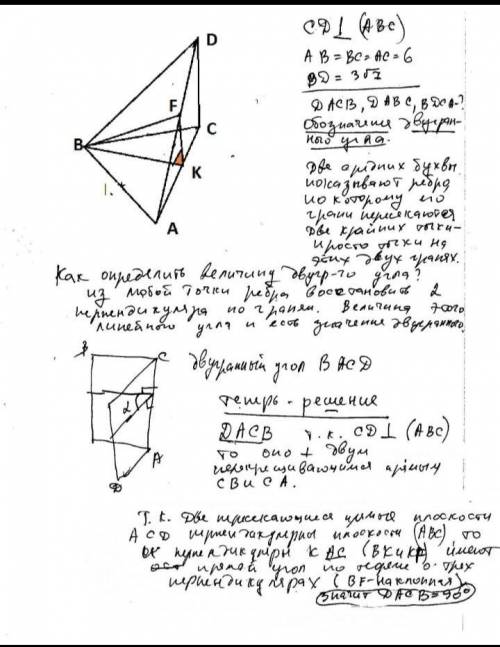 D
F
C
B
K
A
CD⊥(ABC)
AB=BC=AC=6
BD=3√2
DACB, DABC, BDCA-?
Обозначение двугран-
ного угла.
Две средних буквы
показывают ребра
по которому его
грани пересекаются
Две крайних точки-
просто точки на
этих двух гранях.
Как определить величину двугр-го угла?
из любой точки ребра восстановить 2
перпендикуляра по граням. Величина этого
линейного угла и есть значение двугранного.
B
C
двугранный угол BACD
2
A
D
Теперь - решение
DACB т.к. CD⊥(ABC)
то оно ⊥ двум
перекрещивающимся прямым
CB и CA.
Т.к. Две пересекающиеся плоскости
ACD перпендикулярны плоскости (ABC) то
перпендикуляры к AC (BK и KF) имеют
прямой угол по теореме о трех
перпендикулярах (BF-наклонная)
значит DACB=90°